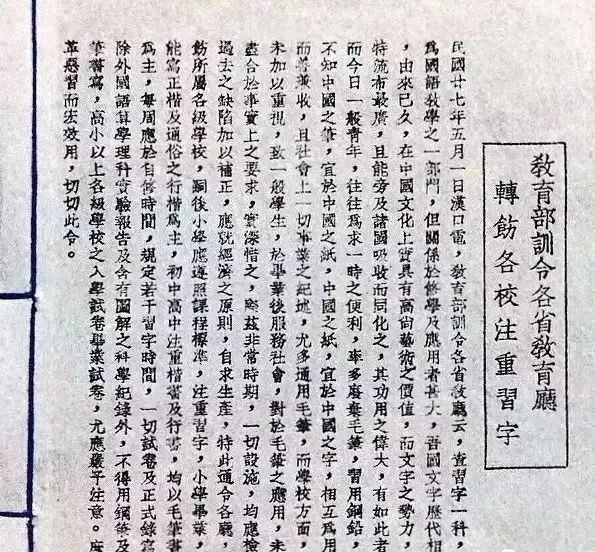 教育部訓令各省教育廳
轉飭各校注重習字
民國廿七年五月一日漢口電，教育部訓令各省教廳云，查習字一科，
為國語教學之一部門，但關係於修學及應用者甚大，吾國文字歷代相
，由來已久，在中國文化上實具有高尚藝術之價值，而文字之勢力，
特流布最廣，且能旁及諸國吸收而同化之，其功用之偉大，有如此者
而今日一般青年，往往為求一時之便利，率多廢棄毛筆，習用鋼鉛，
不知中國之筆，宜於中國之紙，中國之紙，宜於中國之字，相互為用
而善兼收，且社會上一切事業之紀述，尤多通用毛筆，而學校方面，
未加以重視，致一般學生，於畢業後服務社會，對於毛筆之應用，未
盡合於事實上之要求，實深惜之，際茲非常時期，一切設施，均應檢
過去之缺陷加以補正，應就經濟之原則，自求生產，特此通令各廳，
飭所屬各級學校，嗣後小學應遵照課程標準，注重習字，小學畢業，
能寫正楷及通俗之行楷為主，初中高中注重楷書及行書，均以毛筆書
為主，每周應於自修時間，規定若干習字時間，一切試卷及正式錄寫
除外國語算學理科實驗報告及含有圖解之科學紀錄外，不得用鋼筆及
筆書寫，高小以上各級學校之入學試卷畢業試卷，尤應嚴予注意。庶
革惡習而宏效用，切切此令。